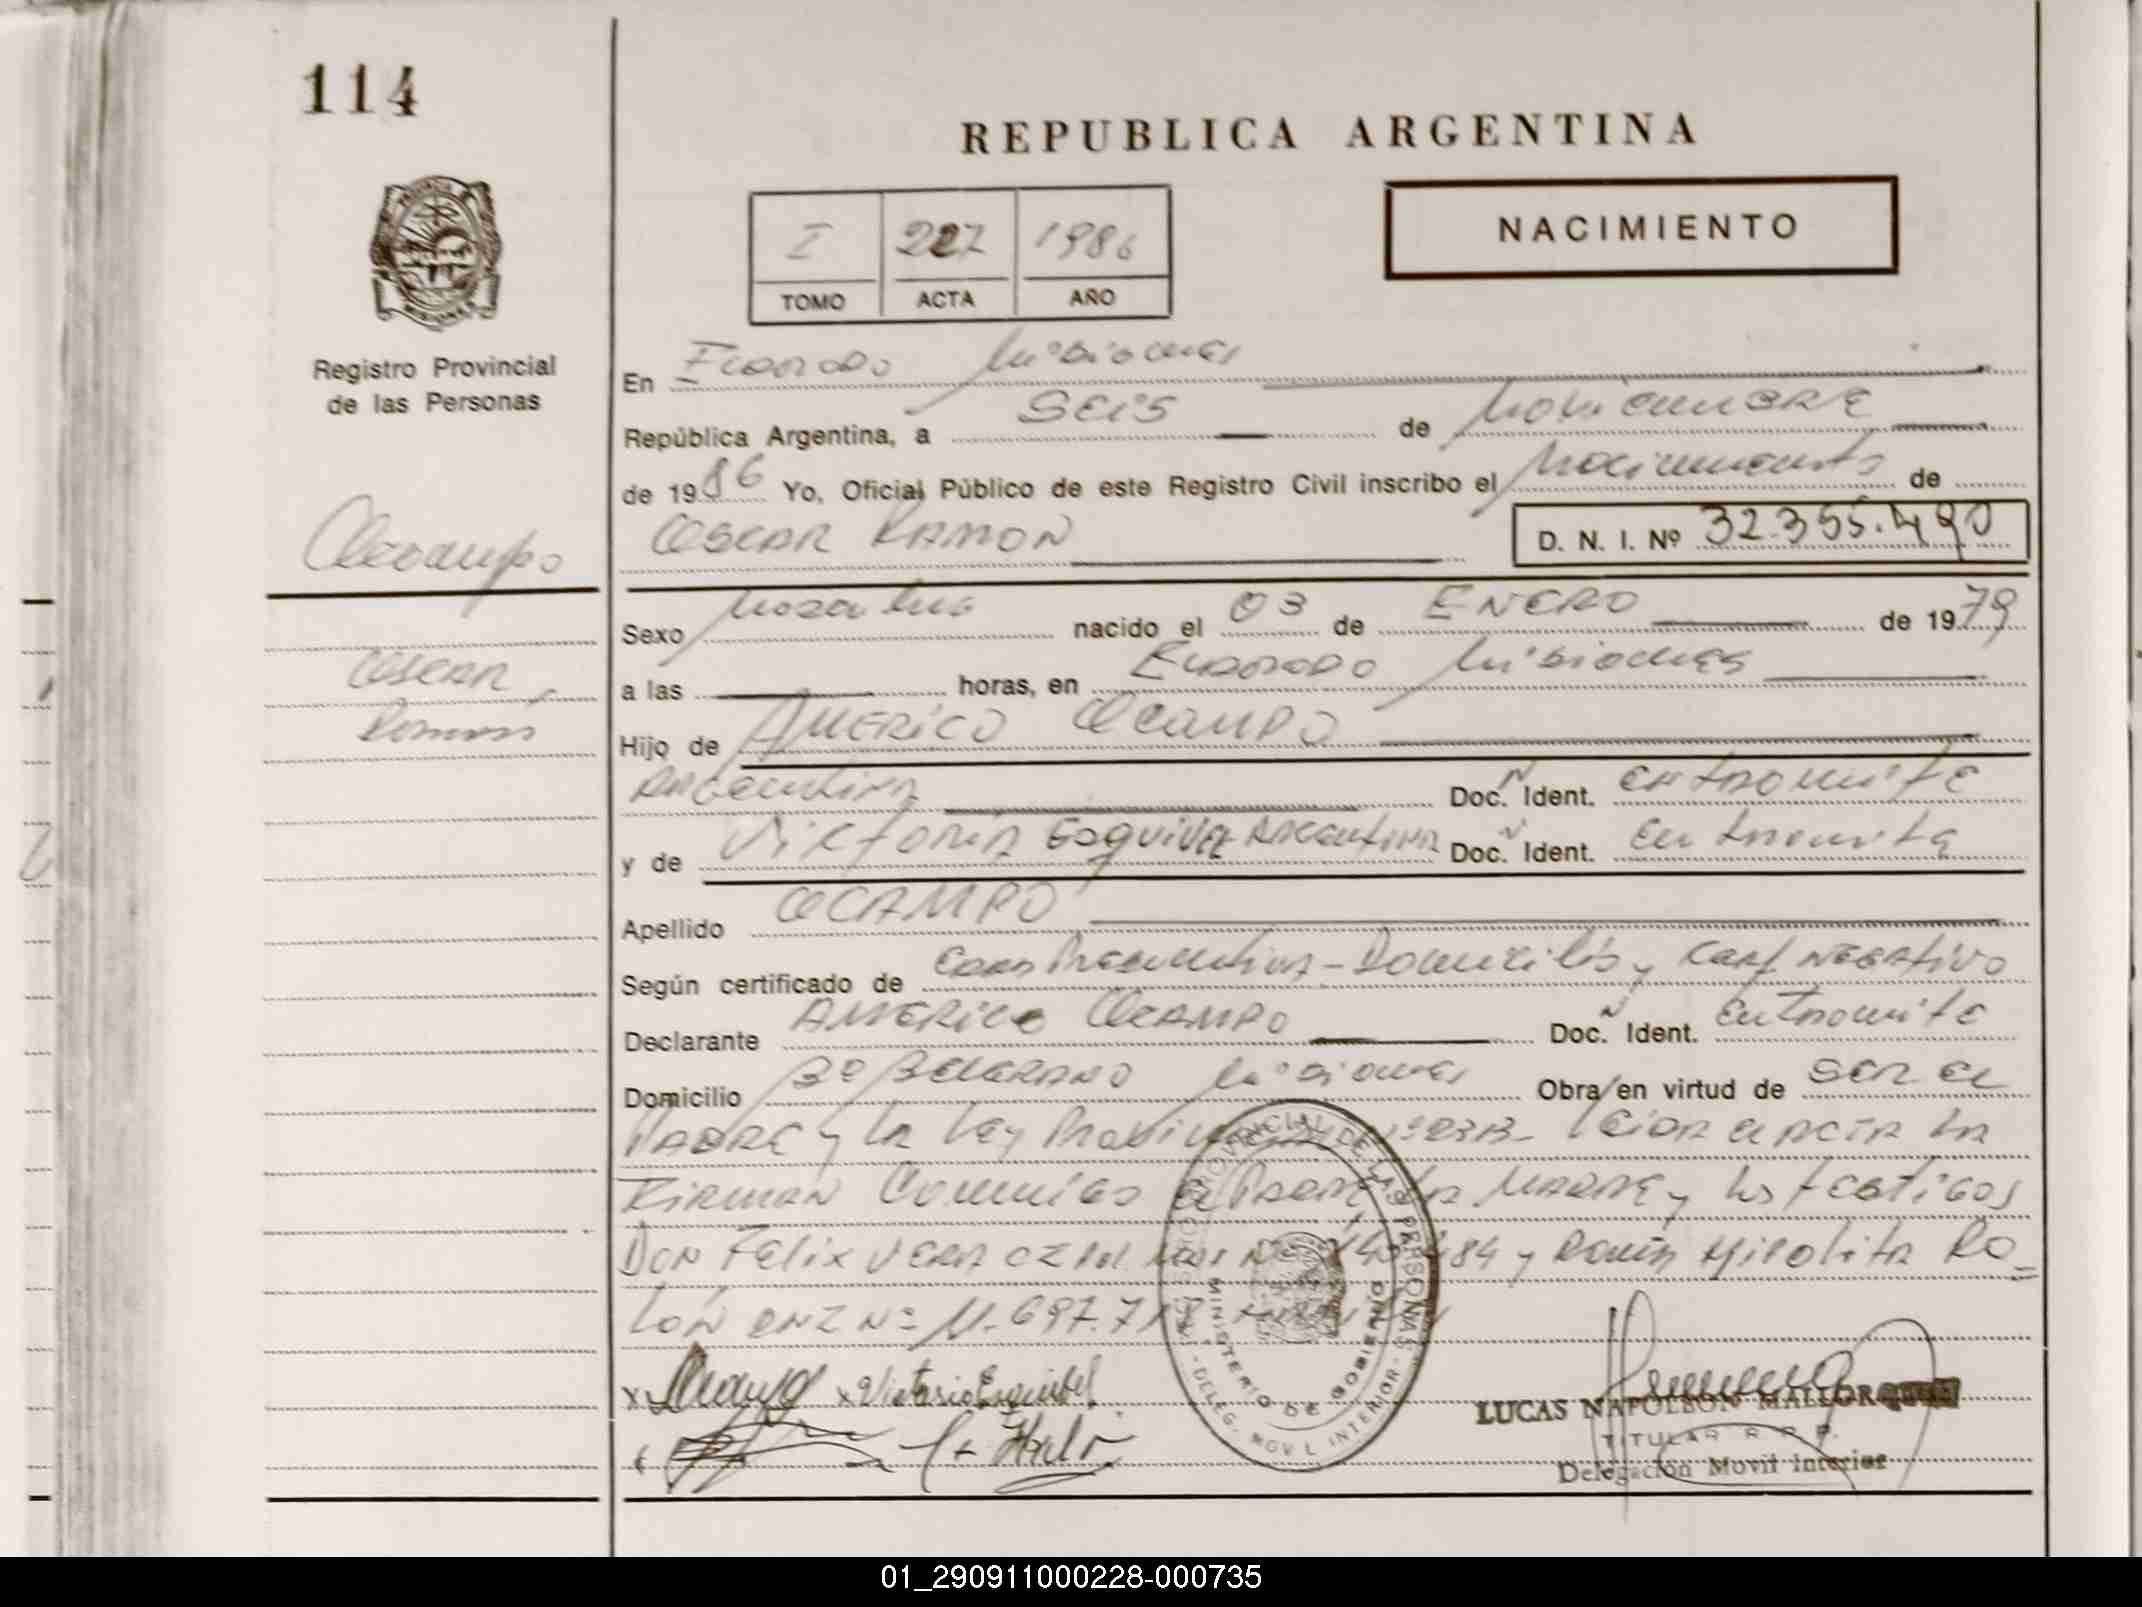 114
REPUBLICA ARGENTINA
NACIMIENTO
I 227 1986
TOMO ACTA AÑO
Registro Provincial
de las Personas
Ocampo
Oscar
Ramon
En Eldorado Misiones
República Argentina, a SEIS de Noviembre
de 1986 Yo, Oficial Público de este Registro Civil inscribo el Nacimiento de
OSCAR RAMON D. N. I. Nº 32.355.490
Sexo Masculino nacido el 03 de ENERO de 1979
a las horas, en Eldorado Misiones
Hijo de AMERICO OCAMPO
Argentina Doc. N Ident. en tramite
y de Victoria Esquivel Argentina Doc. N Ident. en tramite
Apellido OCAMPO
Según certificado de Edad Presuntiva - Domicilio y Cert Negativo
Declarante AMERICO OCAMPO Doc. N Ident. en tramite
Domicilio Bº BELGRANO Misiones Obra en virtud de ser el
PADRE y la Ley Leida el acta la
Firman Conmigo el Padre la Madre y los testigos
DON Felix Vera 84 y Doña Hipolita Ro=
lon DNI Nº 11.697.7
x Ocampo x Victoria Esquivel
REGISTRO PROVINCIAL DE LAS PERSONAS
MINISTERIO DE GOBIERNO
- DELEG. MOVIL INTERIOR -
LUCAS NAPOLEON MALLOR
TITULAR R. P. P.
Delegación Movil Interior
01_290911000228-000735